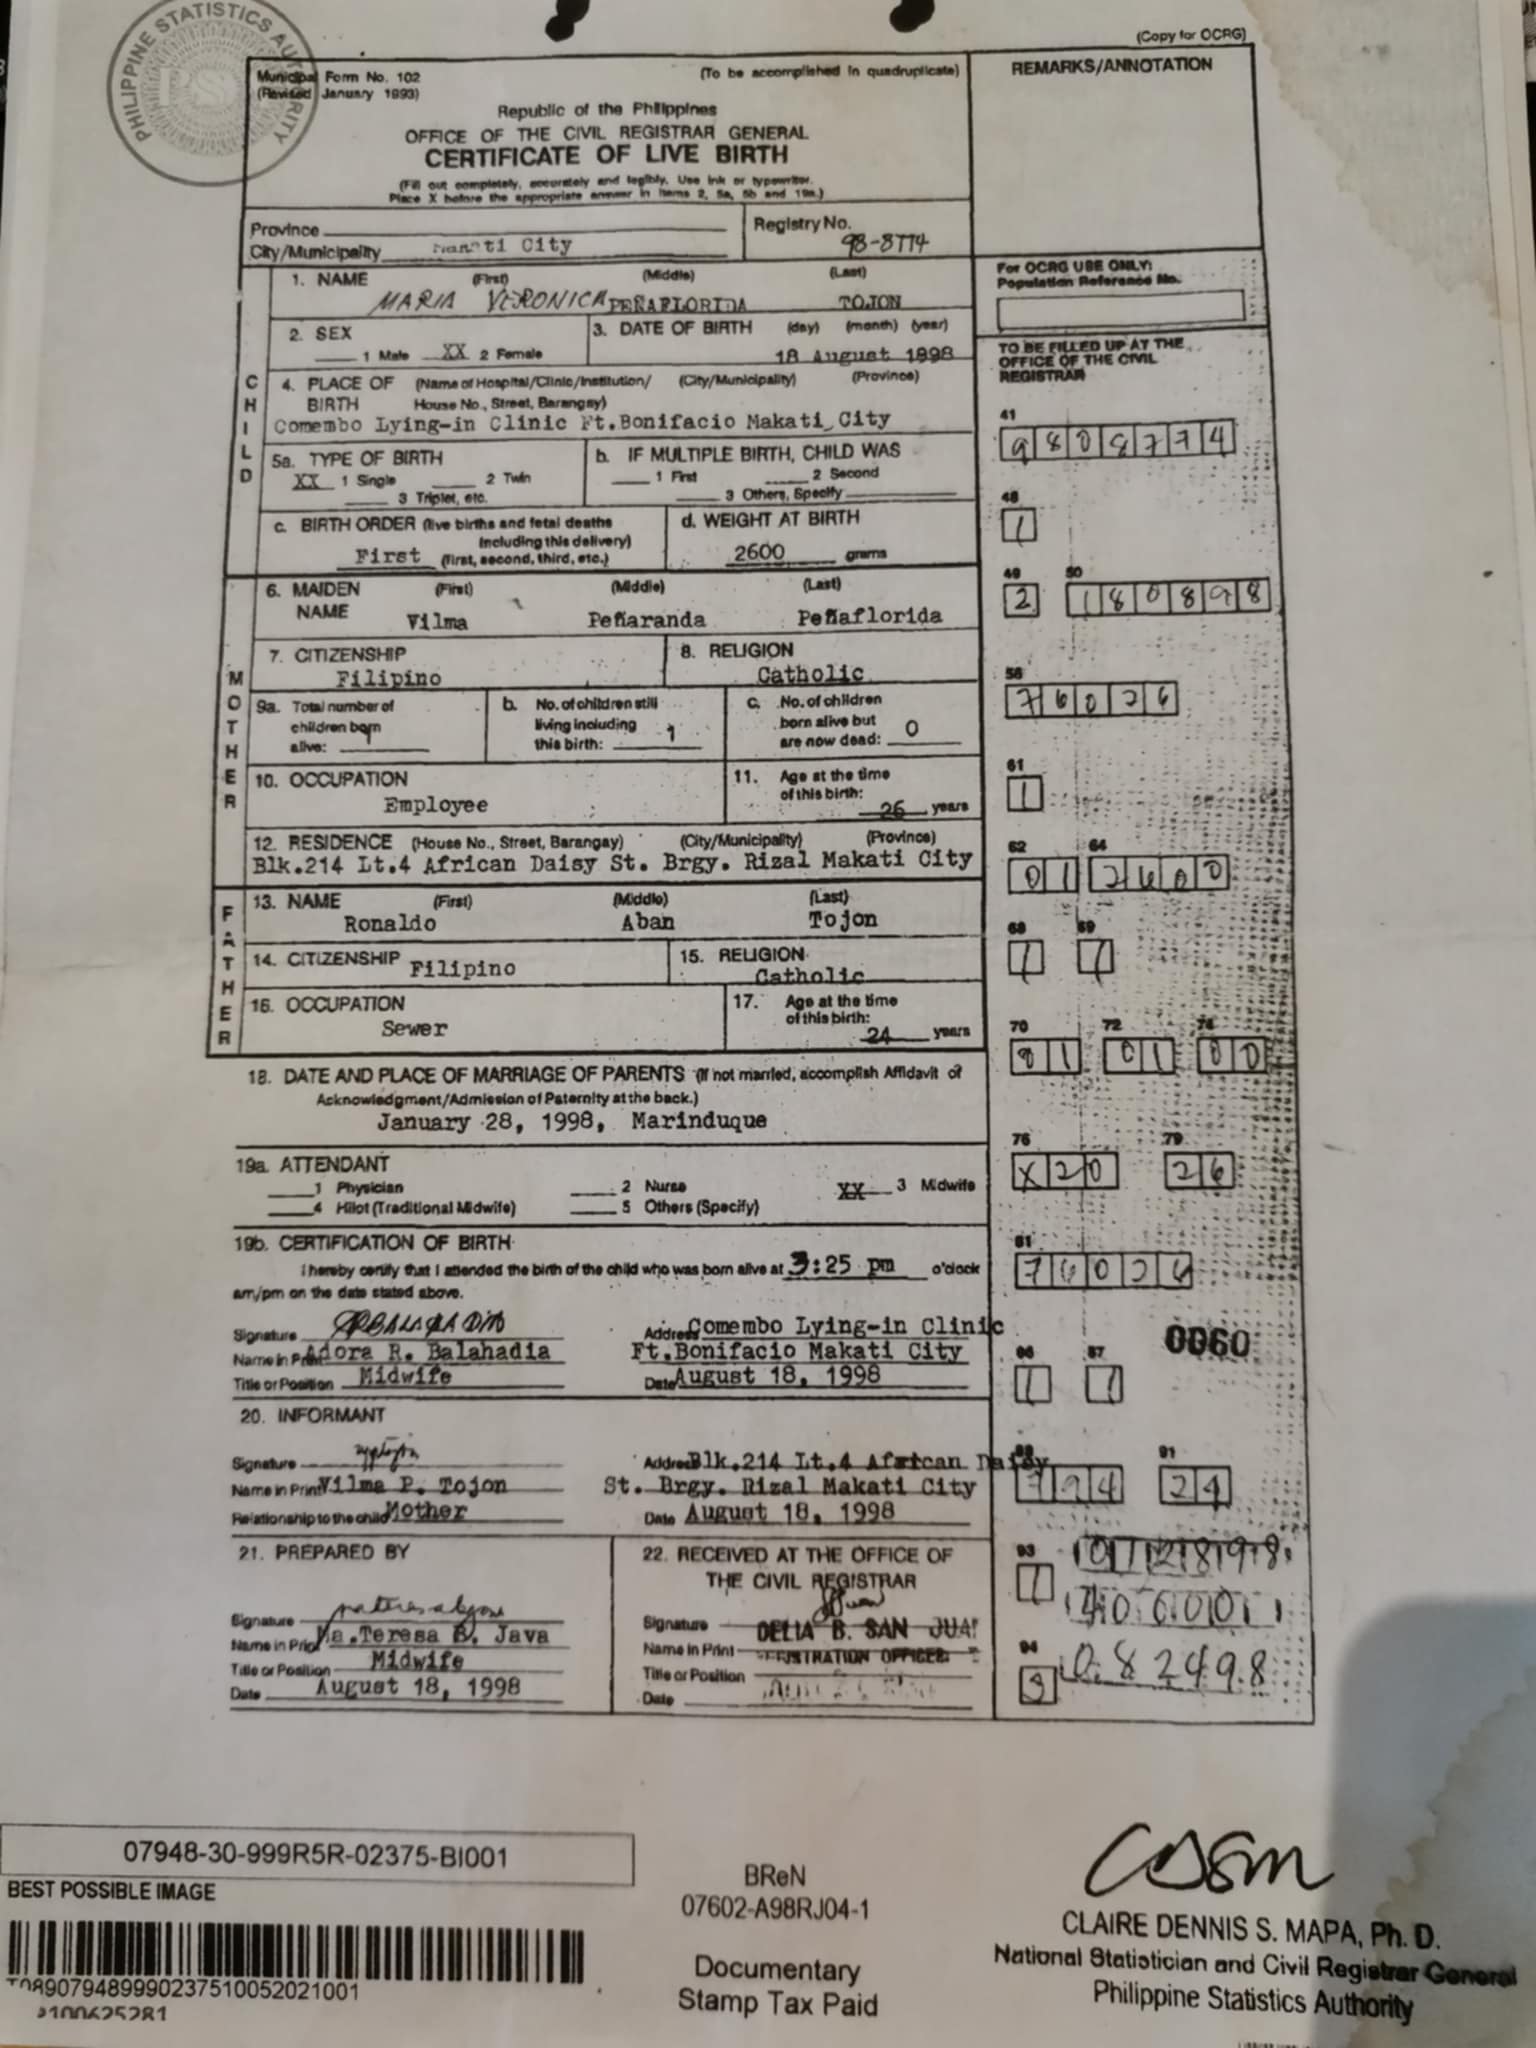 PHILIPPINE STATISTICS AUTHORITY
(Copy for OCRG)
Municipal Form No. 102
(Revised January 1993)
(To be accomplished in quadruplicate)
REMARKS/ANNOTATION
Republic of the Philippines
OFFICE OF THE CIVIL REGISTRAR GENERAL
CERTIFICATE OF LIVE BIRTH
(Fill out completely, accurately and legibly. Use ink or typewriter.
Place X before the appropriate answer in items 2, 5a, 5b and 19a.)
Province
City/Municipality City
Registry No.
98-8774
For OCRG USE ONLY:
Population Reference No.
CHILD
1. NAME (First) (Middle) (Last)
MARIA VERONICA PEÑAFLORIDA TOJON
2. SEX
1 Male XX 2 Female
3. DATE OF BIRTH (day) (month) (year)
18 August 1998
TO BE FILLED UP AT THE
OFFICE OF THE CIVIL
REGISTRAR
4. PLACE OF BIRTH (Name of Hospital/Clinic/Institution/ (City/Municipality) (Province)
House No., Street, Barangay)
Comembo Lying-in Clinic Ft.Bonifacio Makati City
41
9808774
5a. TYPE OF BIRTH
XX 1 Single 2 Twin
3 Triplet, etc.
b. IF MULTIPLE BIRTH, CHILD WAS
1 First 2 Second
3 Others, Specify
48
1
c. BIRTH ORDER (live births and fetal deaths
including this delivery)
First (first, second, third, etc.)
d. WEIGHT AT BIRTH
2600 grams
49 50
2 180898
MOTHER
6. MAIDEN NAME (First) (Middle) (Last)
Vilma Peñaranda Peñaflorida
7. CITIZENSHIP
Filipino
8. RELIGION
Catholic
56
76026
9a. Total number of
children born
alive: 1
b. No. of children still
living including
this birth: 1
c. No. of children
born alive but
are now dead: 0
10. OCCUPATION
Employee
11. Age at the time
of this birth:
26 years
61
1
12. RESIDENCE (House No., Street, Barangay) (City/Municipality) (Province)
Blk.214 Lt.4 African Daisy St. Brgy. Rizal Makati City
62 64
01 2600
FATHER
13. NAME (First) (Middle) (Last)
Ronaldo Aban Tojon
68 69
1 1
14. CITIZENSHIP Filipino
15. RELIGION
Catholic
16. OCCUPATION
Sewer
17. Age at the time
of this birth:
24 years
70 72 74
01 01 00
18. DATE AND PLACE OF MARRIAGE OF PARENTS (If not married, accomplish Affidavit of
Acknowledgment/Admission of Paternity at the back.)
January 28, 1998, Marinduque
76 79
X20 26
19a. ATTENDANT
1 Physician 2 Nurse XX 3 Midwife
4 Hilot (Traditional Midwife) 5 Others (Specify)
19b. CERTIFICATION OF BIRTH
I hereby certify that I attended the birth of the child who was born alive at 3:25 pm o'clock
am/pm on the date stated above.
81
76026
Signature
Name in Print Adora R. Balahadia
Title or Position Midwife
Address Comembo Lying-in Clinic
Ft.Bonifacio Makati City
Date August 18, 1998
0060
86 87
1 1
20. INFORMANT
Signature
Name in Print Vilma P. Tojon
Relationship to the child Mother
Address Blk.214 Lt.4 African Daisy
St. Brgy. Rizal Makati City
Date August 18, 1998
91
24
21. PREPARED BY
Signature
Name in Print Ma.Teresa B. Java
Title or Position Midwife
Date August 18, 1998
22. RECEIVED AT THE OFFICE OF
THE CIVIL REGISTRAR
Signature
Name in Print DELIA B. SAN JUAN
Title or Position
Date
93
1 012898
94
082498
07948-30-999R5R-02375-BI001
BEST POSSIBLE IMAGE
BReN
07602-A98RJ04-1
Documentary
Stamp Tax Paid
CLAIRE DENNIS S. MAPA, Ph. D.
National Statistician and Civil Registrar General
Philippine Statistics Authority